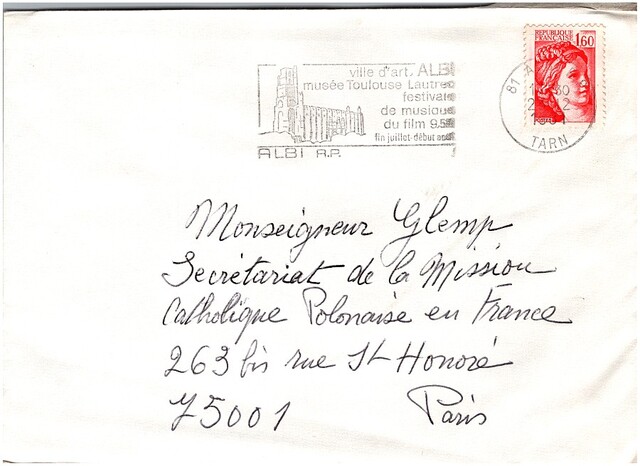 ville d'art. ALBI
musée Toulouse Lautrec
festivals
de musique
du film 9.5
fin juillet-début août
ALBI R.P.
REPUBLIQUE
FRANÇAISE 1,60
81
TARN
Monseigneur Glemp
Secrétariat de la Mission
Catholique Polonaise en France
263 bis rue St Honoré
75001 Paris